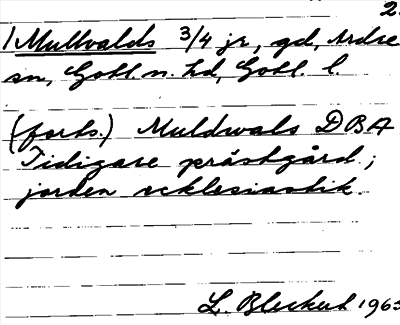 2.
/Mullvalds 3/4 jr, gd, Ardre
sn, Gotl. n. hd, Gotl. l.
(forts.) Muldwals DBA
Tidigare prästgård;
jorden ecklesiastik.
L. Bleckert 1963